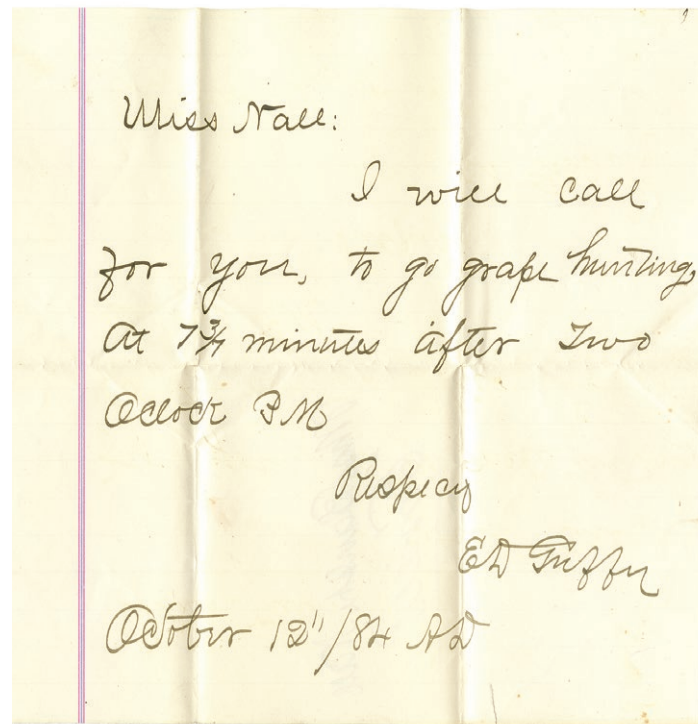 Miss Nall:
I will call
for you, to go grape hunting,
At 7¾ minutes after Two
Oclock P M
Respecy
E D
October 12"/84 A D